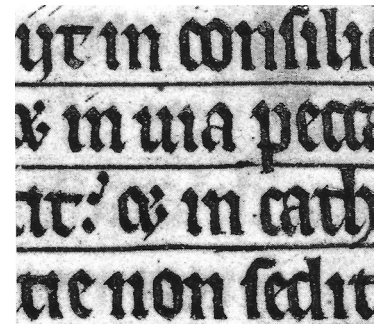 ijt in consilio
& in uia pecca
tit: & in cath
tie non sedit